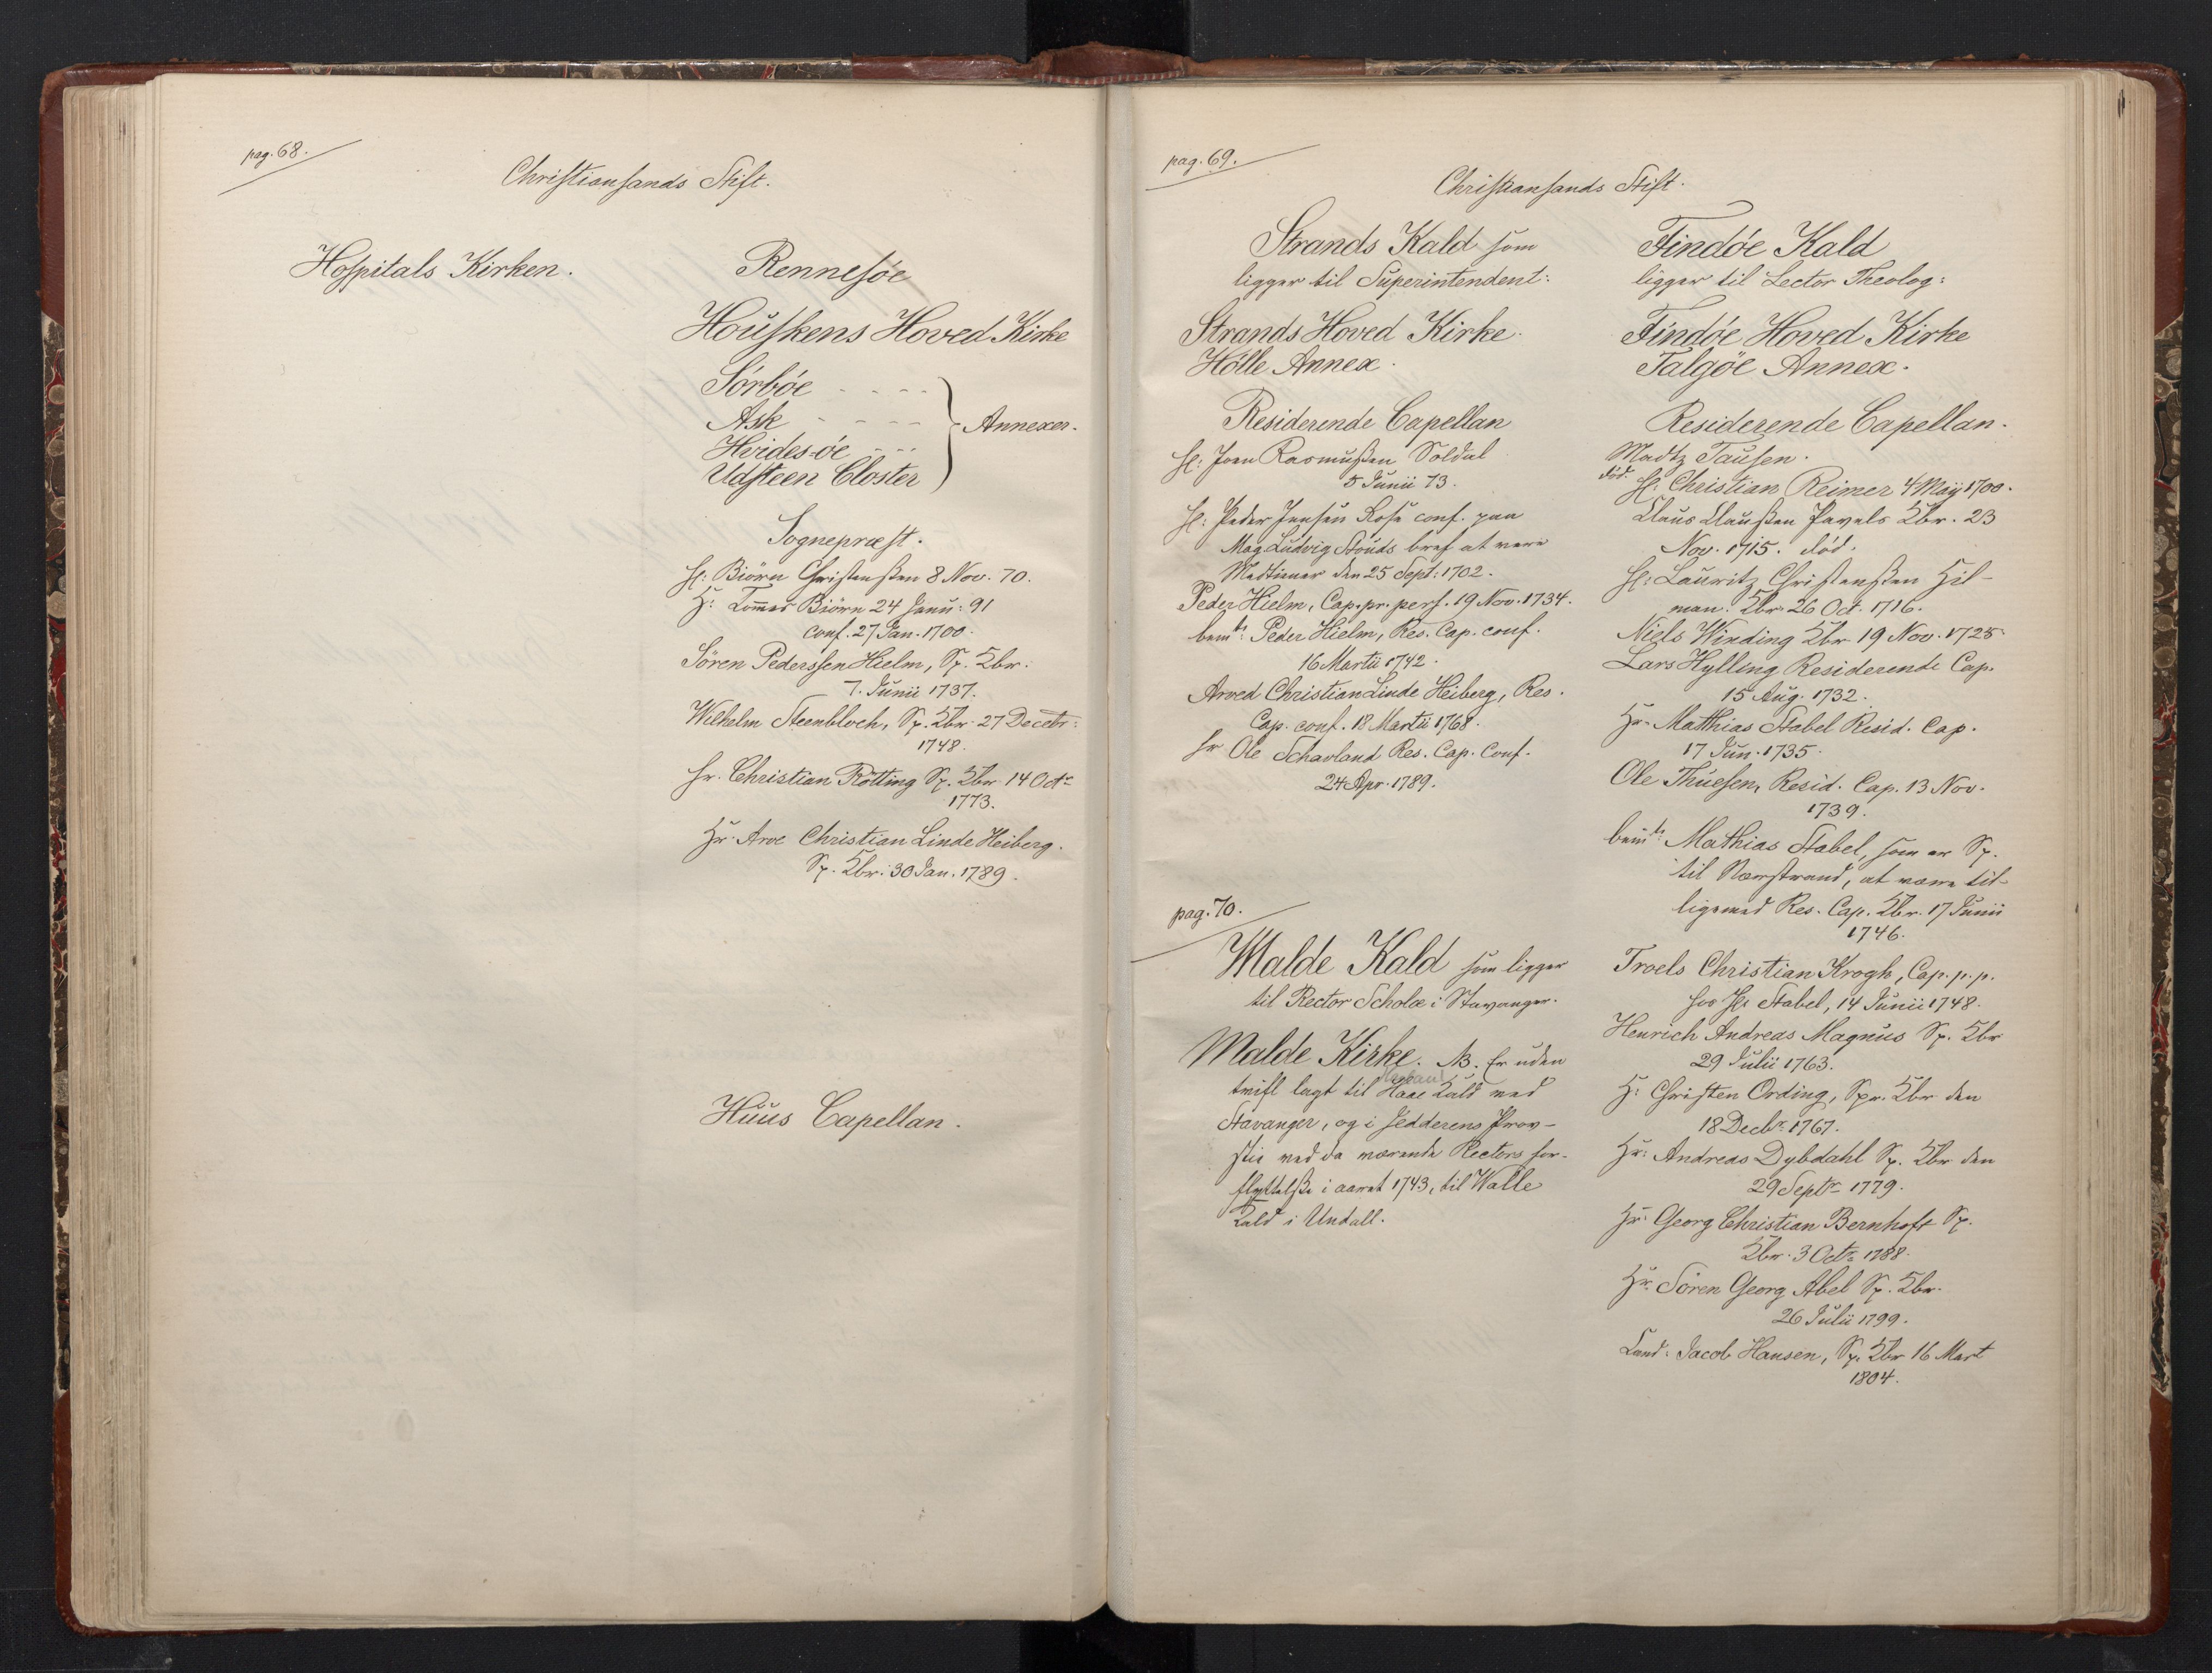 pag. 68.
Christiansands Stift.
Hospitals Kirken.
Rennesøe
Houskens Hoved Kirke
Sørbøe - - - -
Ask - - - -
Hvides-øe - - -
Udsteen Closter
Annexer.
Sognepræst.
H: Biörn Christenssen 8 Nov. 70.
H: Tomas Biörn 24 Janu: 91
conf. 27 Jan. 1700.
Sören Pederssen Hielm, Sp. Kbr:
7. Junii 1737.
Wilhelm Steenbloch, Sp. Kbr. 27 Decebr:
1748.
Hr. Christian Rötting Sp. Kbr. 14 Octr
1773.
Hr. Arve Christian Linde Heiberg.
Sp. Kbr. 30 Jan. 1789.
Huus Capellan.
pag. 69.
Christiansands Stift.
Strands Kald som
ligger til Superintendent:
Strands Hoved Kirke.
Hölle Annex.
Residerende Capellan
H: Joen Rasmussen Soldal
5 Junii 73.
H: Peder Jensen Rose conf. paa
Mag. Ludvig Stouds bref at være
Medtiener den 25 Sept: 1702.
Peder Hielm, Cap. pr. pers. 19 Nov. 1734.
bemte: Peder Hielm, Res. Cap. conf.
16 Martii 1742.
Arved Christian Linde Heiberg, Res.
Cap. conf. 18 Martii 1768.
Hr Ole Schavland Res. Cap. Conf.
24 Apr. 1789.
pag. 70.
Malde Kald som ligger
til Rector Scholæ i Stavanger.
Malde Kirke. NB. Er uden
tvifl lagt til Haae Kald ved
Stavanger, og i Jedderens Prov-
stie ved da værende Rectors for-
flyttelse i aaret 1743, til Walle
Kald i Undall.
Findøe Kald
ligger til Lector Theolog:
Findøe Hoved Kirke
Talgøe Annex.
Residerende Capellan.
Madtz Tausen.
död. H: Christian Reimer 4 Maij 1700.
Claus Claussen Pavels Kbr. 23
Nov. 1715. död.
H: Lauritz Christenssen Hil-
man. Kbr. 26 Oct. 1716.
Niels Winding Kbr 19 Nov. 1725.
Lars Hylling Residerende Cap.
15 Aug. 1732.
Hr. Matthias Stabel Resid. Cap.
17 Jun. 1735.
Ole Thuesen, Resid. Cap. 13 Nov.
1739.
bemte: Mathias Stabel, som er Sp.
til Nærstrand, at være til-
ligemed Res. Cap. Kbr. 17 Junii
1746.
Troels Christian Krogh, Cap. p. p.
hos Hr Stabel, 14 Junii 1748.
Henrich Andreas Magnus Sp. Kbr
29 Julii 1763.
H: Christen Ording, Spr. Kbr den
18 Decbr. 1767.
Hr: Andreas Dybdahl Sp. Kbr den
29 Septr 1779.
Hr. Georg Christian Bernhoft Sp.
Kbr. 3 Octr 1788.
Hr. Sören Georg Abel Sp. Kbr.
26 Julii 1799.
Cand: Jacob Hansen, Sp. Kbr 16 Mart
1804.